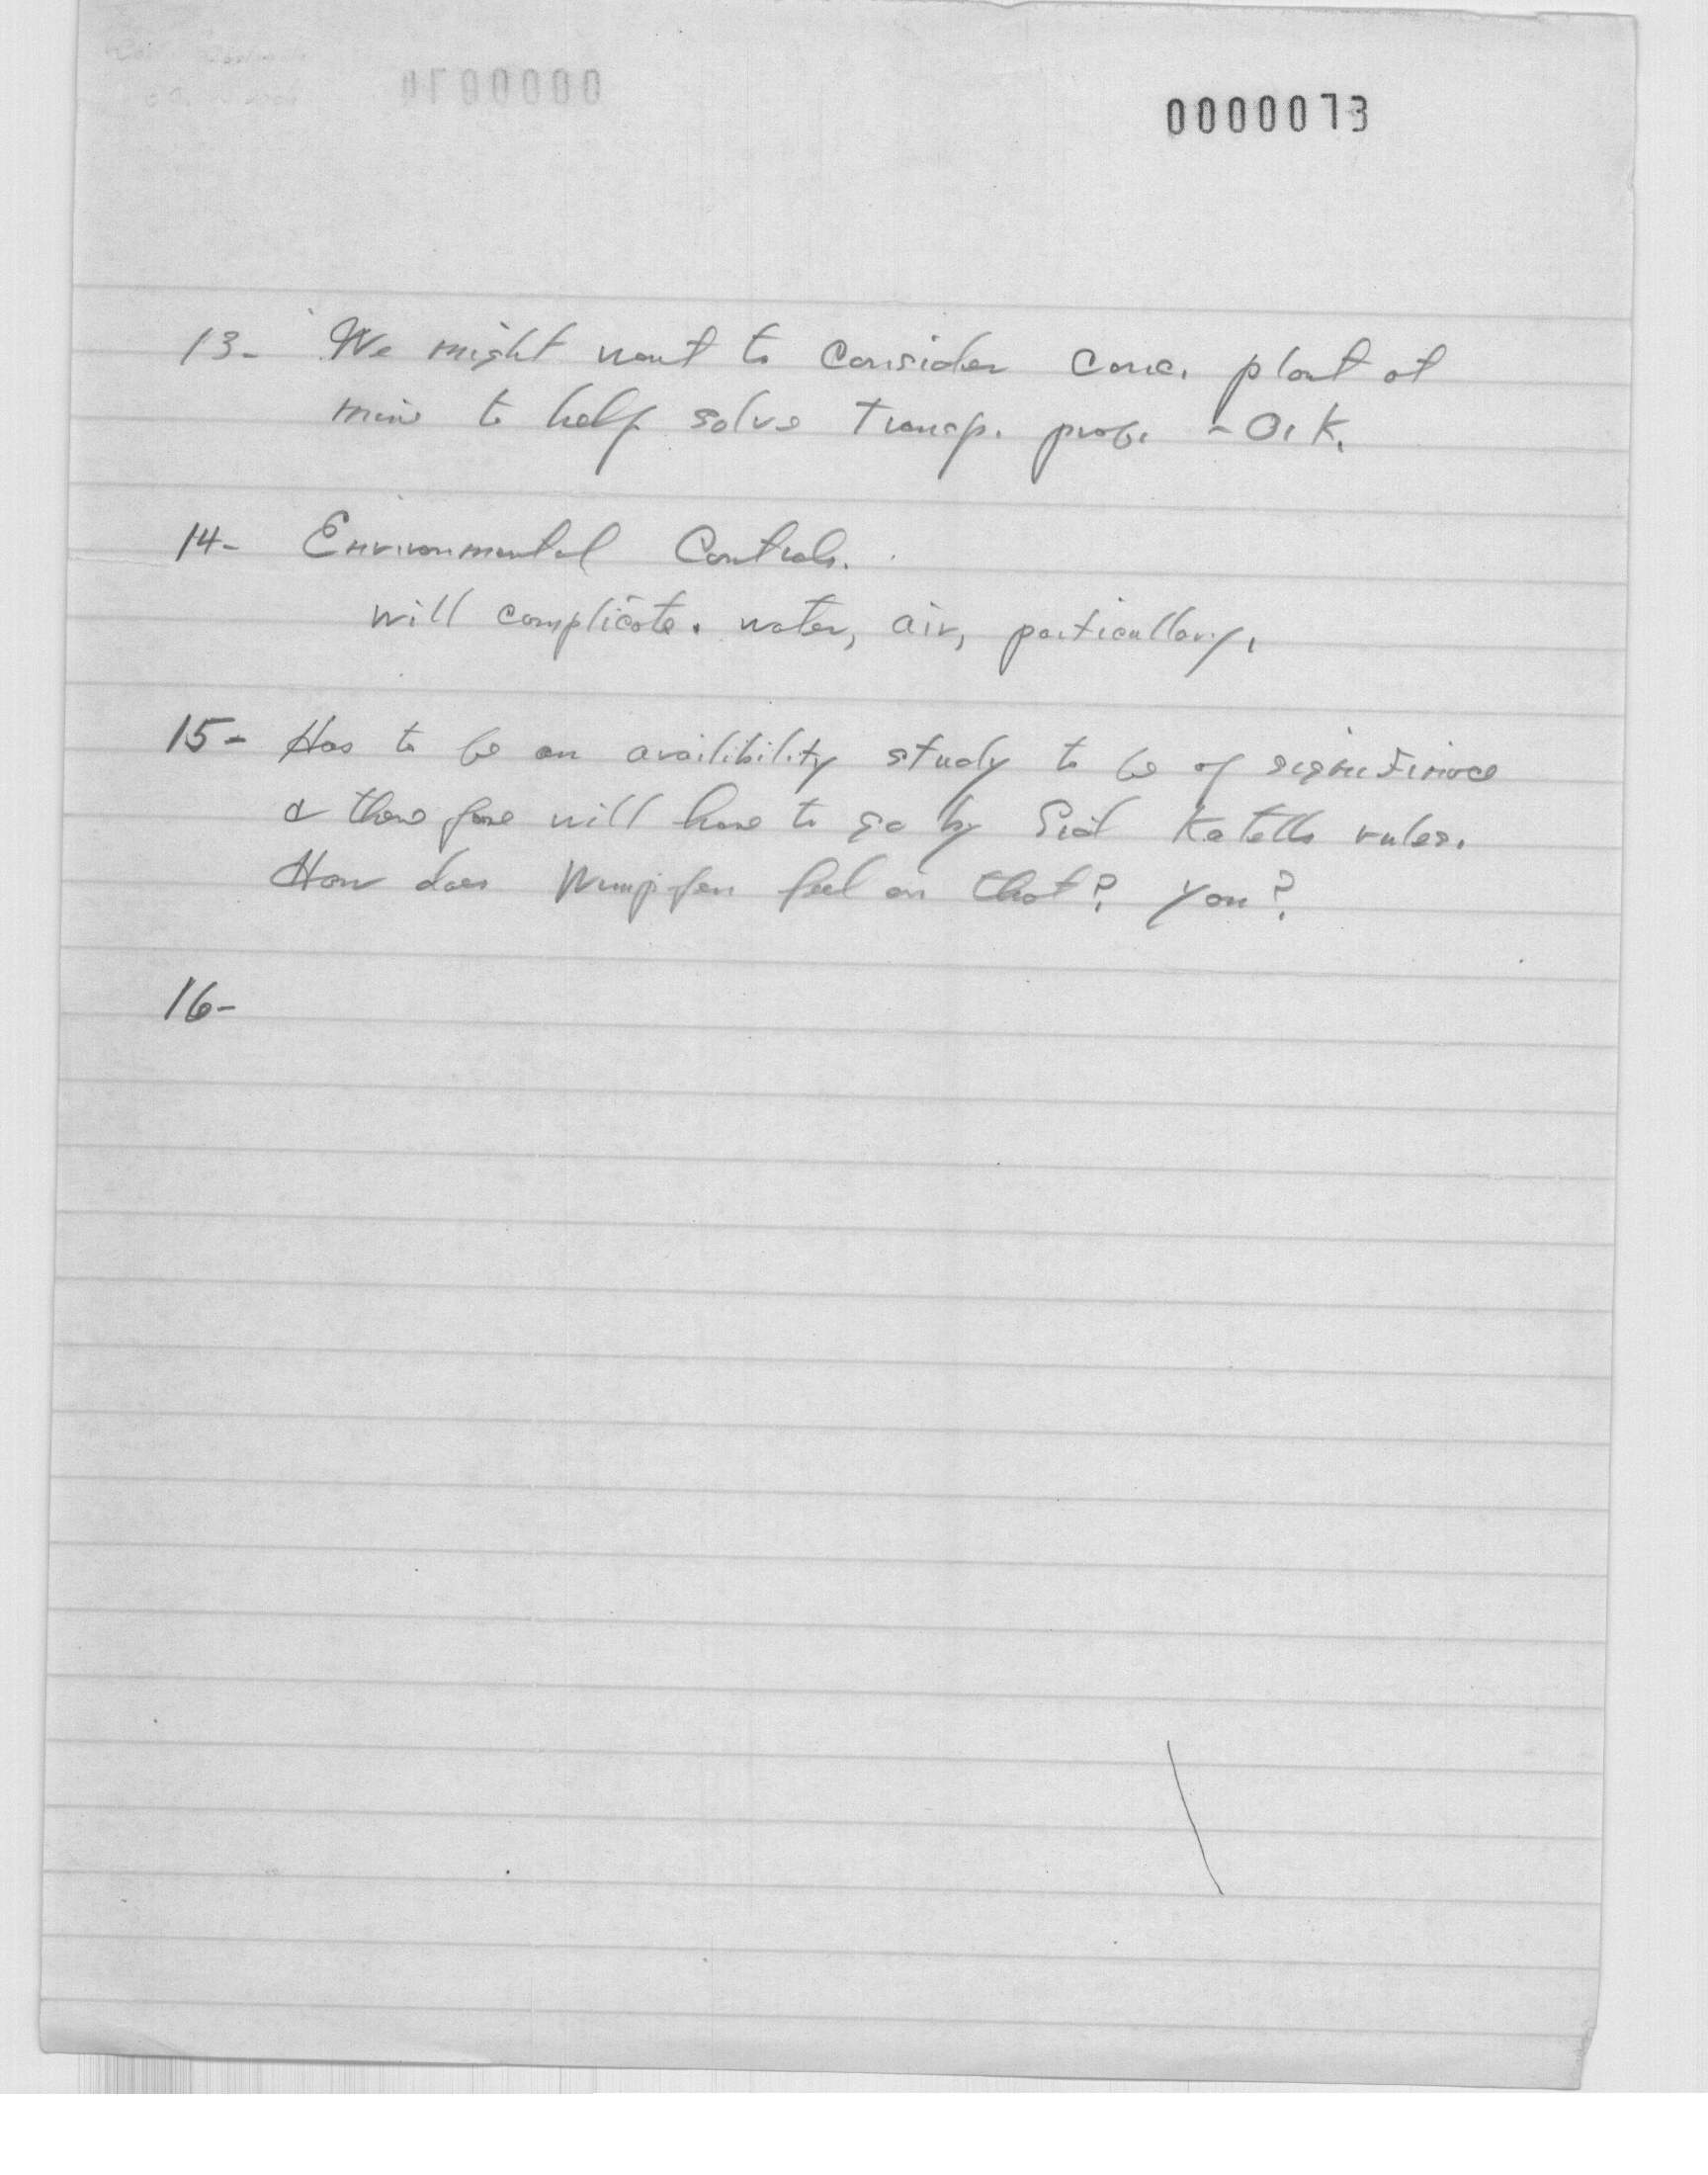 0000073
13- We might want to consider conc. plant at
mine to help solve transp. prob. - O.K.
14- Environmental Controls.
will complicate. water, air, particullary.
15- Has to be an availibility study to be of
& therefore will have to go by Sid Katells rules.
How does feel on that? You?
16-